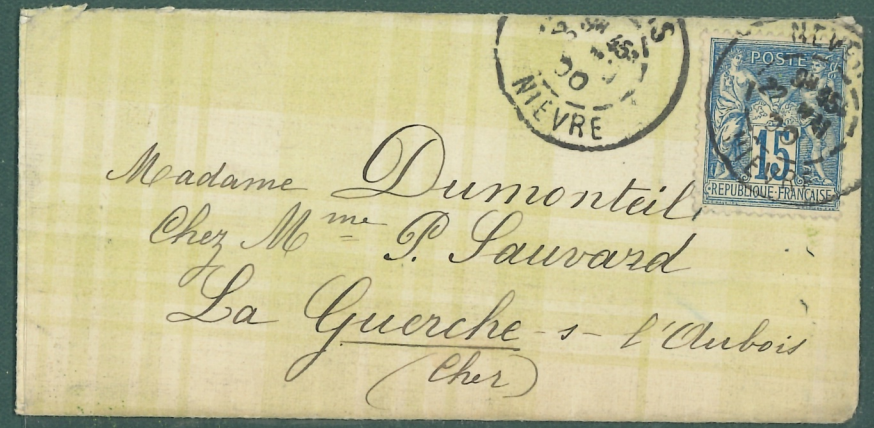 NIEVRE
NEVERS
POSTE
15
REPUBLIQUE FRANÇAISE
Madame Dumonteil,
Chez Mme P. Sauvard
La Guerche-s-l'Aubois
(Cher)